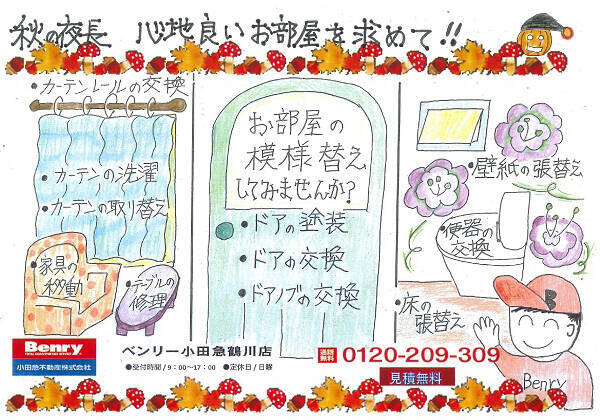 秋の夜長 心地良いお部屋を求めて!!
•カーテンレールの交換
•カーテンの洗濯
•カーテンの取り替え
•家具の
移動
•テーブルの
修理
お部屋の
模様替え
してみませんか?
•ドアの塗装
•ドアの交換
•ドアノブの交換
•壁紙の張替え
•便器の
交換
•床の
張替え
B
Benry
Benry.
小田急不動産株式会社
ベンリー小田急鶴川店
●受付時間/9:00～17:00 ●定休日/日曜
通話無料 0120-209-309
見積無料